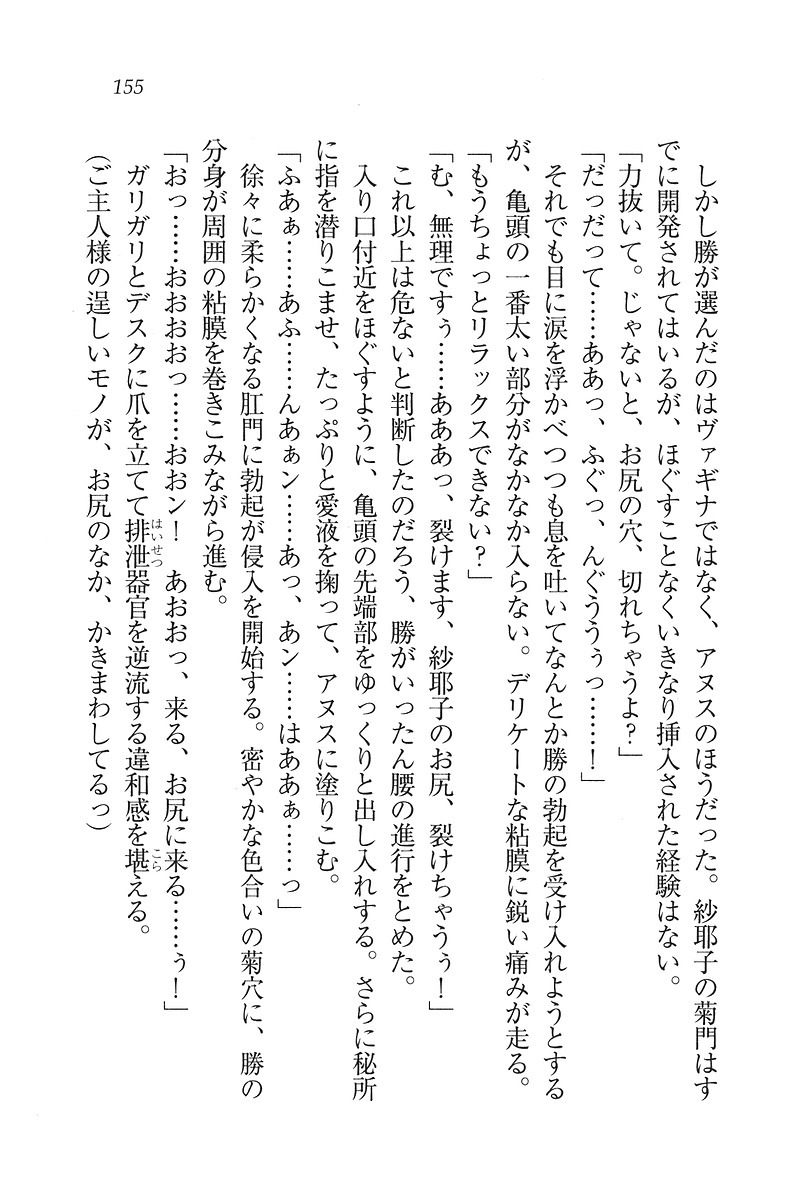 155
しかし勝が選んだのはヴァギナではなく、アヌスのほうだった。紗耶子の菊門はす
でに開発されてはいるが、ほぐすことなくいきなり挿入された経験はない。
「力抜いて。じゃないと、お尻の穴、切れちゃうよ?」
「だっだって……ああっ、ふぐっ、んぐううぅっ……!」
それでも目に涙を浮かべつつも息を吐いてなんとか勝の勃起を受け入れようとする
が、亀頭の一番太い部分がなかなか入らない。デリケートな粘膜に鋭い痛みが走る。
「もうちょっとリラックスできない?」
「む、無理ですぅ……あああっ、裂けます、紗耶子のお尻、裂けちゃうぅ!」
これ以上は危ないと判断したのだろう、勝がいったん腰の進行をとめた。
入り口付近をほぐすように、亀頭の先端部をゆっくりと出し入れする。さらに秘所
に指を潜りこませ、たっぷりと愛液を掬って、アヌスに塗りこむ。
「ふあぁ……あふ……んあぁン……あっ、あン……はああぁ……っ」
徐々に柔らかくなる肛門に勃起が侵入を開始する。密やかな色合いの菊穴に、勝の
分身が周囲の粘膜を巻きこみながら進む。
「おっ……おおおおっ……おおン! あおおっ、来る、お尻に来る……ぅ!」
ガリガリとデスクに爪を立てて排泄器官を逆流する違和感を堪える。
(ご主人様の逞しいモノが、お尻のなか、かきまわしてるっ)
はいせつ
こら